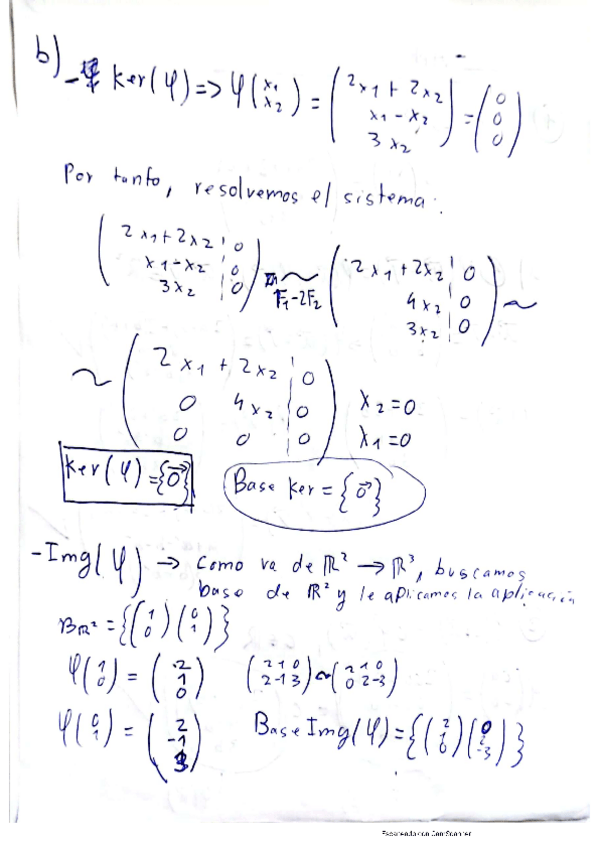 b) - Ker(φ) => φ(x₁ x₂) = (2x₁ + 2x₂, x₁ - x₂, 3x₂) = (0 0 0)
Por tanto, resolvemos el sistema:
(2x₁+2x₂ | 0, x₁-x₂ | 0, 3x₂ | 0) ~ F₁-2F₂ (2x₁+2x₂ | 0, 4x₂ | 0, 3x₂ | 0) ~
~ (2x₁ + 2x₂ | 0, 0 4x₂ | 0, 0 0 | 0) x₂=0
x₁=0
Ker(φ)={0⃗} Base Ker = {0⃗}
- Img(φ) → Como va de ℝ² → ℝ³, buscamos
base de ℝ² y le aplicamos la aplicación
Bℝ² = {(1 0) (0 1)}
φ(1 0) = (2 1 0) (2 1 0, 2 -1 3) ~ (2 1 0, 0 2 -3)
φ(0 1) = (2 -1 3) Base Img(φ) = {(2 1 0) (0 2 -3)}
Escaneado con CamScanner